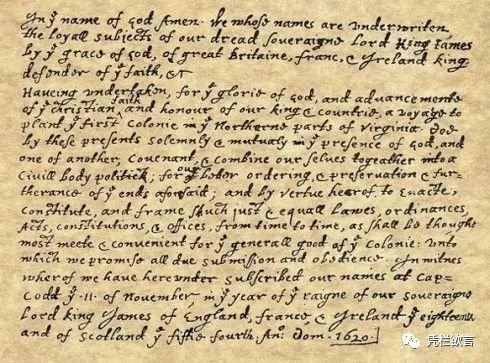 In yͤ name of God Amen. We whose names are underwriten,
the loyall subjects of our dread soveraigne Lord King James
by yͤ grace of God, of great Britaine, franc, & Ireland king,
defender of yͤ faith, &c
Haveing undertaken, for yͤ glorie of God, and advancemente
of yͤ christian faith and honour of our king & countrie, a voyage to
plant yͤ first colonie in yͤ Northerne parts of virginia. doe
by these presents solemnly & mutualy in yͤ presence of God, and
one of another, covenant, & combine our selves togeather into a
Civill body politick; for our better ordering, & preservation & fur=
therance of yͤ ends aforesaid; and by vertue hereof to Enacte,
constitute, and frame such just & equall Lawes, ordinances,
Acts, constitutions, & offices, from time to time, as shall be thought
most meete & convenient for yͤ generall good of yͤ Colonie: unto
which we promise all due submission and obedience. In witnes
wherof we have hereunder subscribed our names at Cap=
Codd yͤ .11. of November, in yͤ year of yͤ raigne of our soveraigne
Lord king James of England, france, & Ireland yͤ eighteenth
and of scotland yͤ fiftie fourth. Anͦ: Dom. 1620.
凭栏欲言